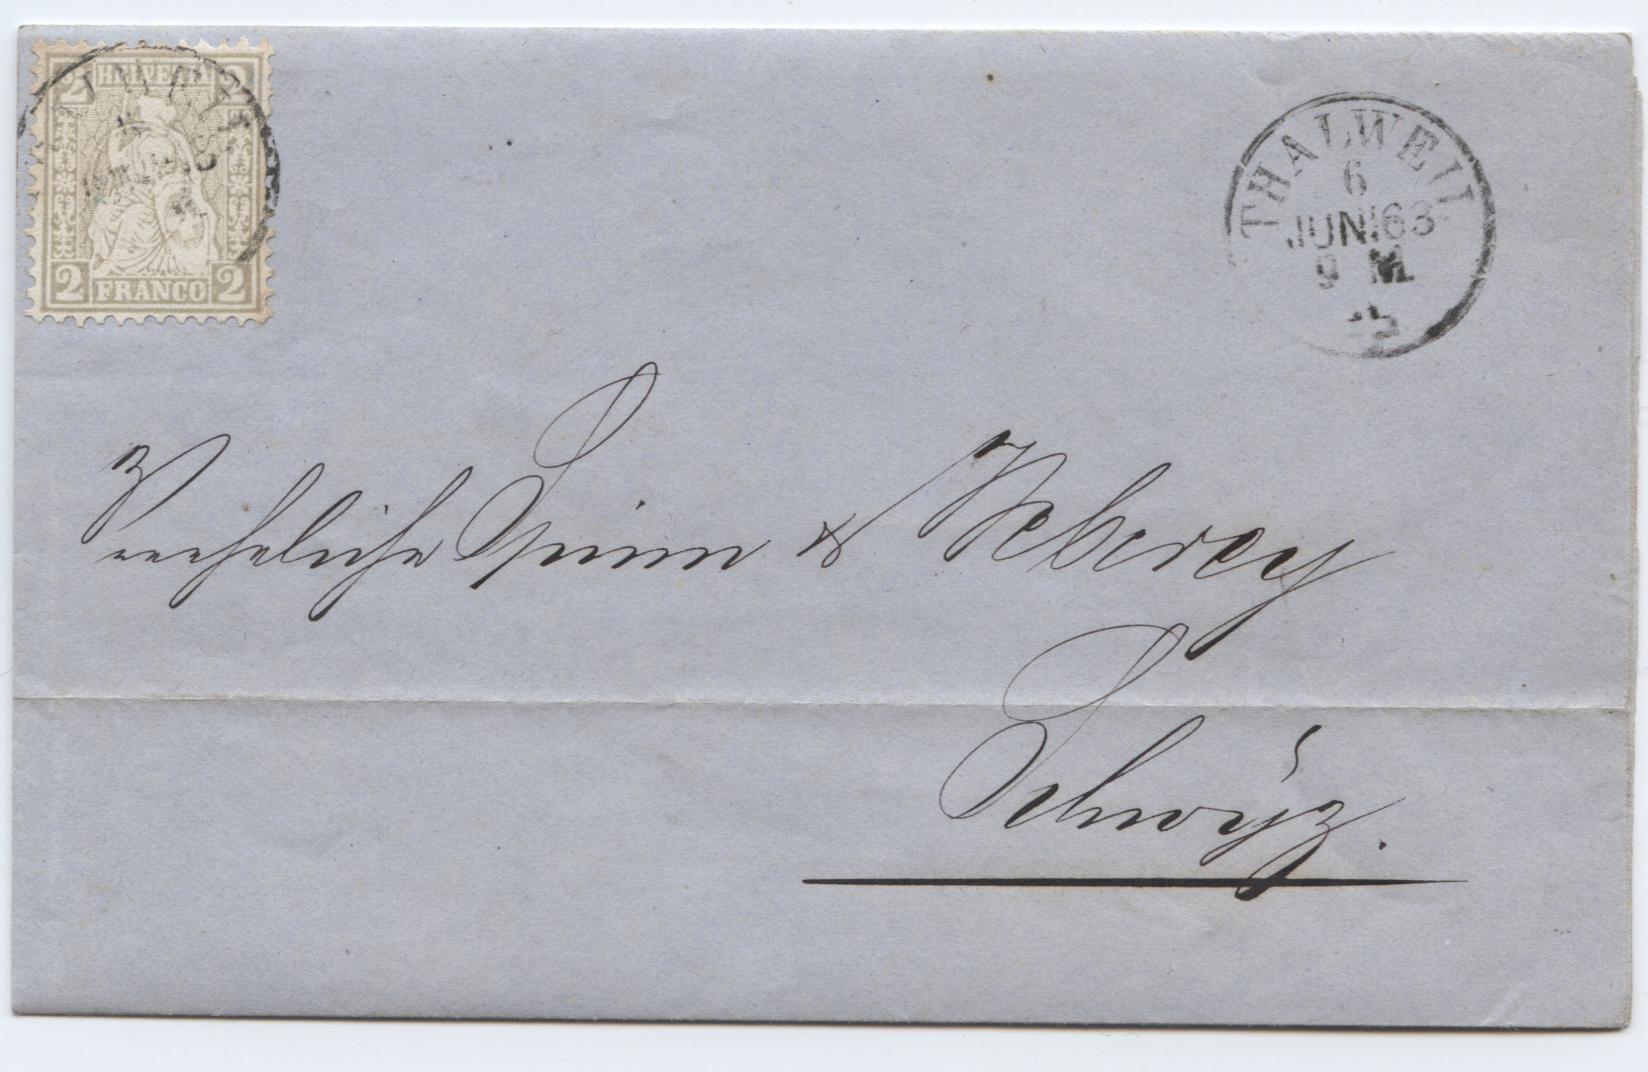 2 HELVETIA 2
2 FRANCO 2
THALWEIL
6
JUNI 63
9 M
Verehrliche Spinn & Weberey
Schwÿz.